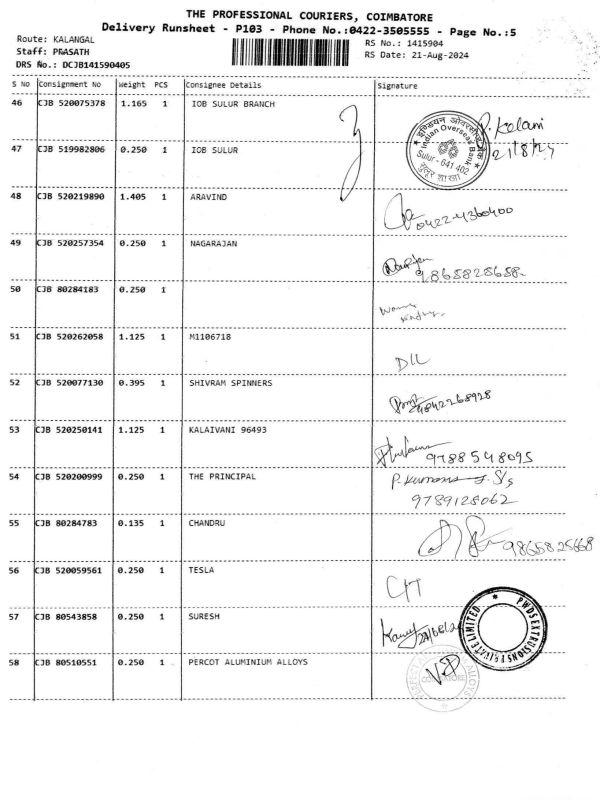 THE PROFESSIONAL COURIERS, COIMBATORE
Delivery Runsheet - P103 - Phone No.:0422-3505555 - Page No.:5
Route: KALANGAL
Staff: PRASATH
DRS No.: DCJB141590405
RS No.: 1415904
RS Date: 21-Aug-2024
S No Consignment No Weight PCS Consignee Details Signature
46 CJB 520075378 1.165 1 IOB SULUR BRANCH
इण्डियन ओवरसीज़ बैंक
Indian Overseas Bank
Sulur - 641 402
P. Kalani
21/8/24
47 CJB 519982806 0.250 1 IOB SULUR
48 CJB 520219890 1.405 1 ARAVIND
0422-4360400
49 CJB 520257354 0.250 1 NAGARAJAN
9865828658
50 CJB 80284183 0.250 1
51 CJB 520262058 1.125 1 M1106718
52 CJB 520077130 0.395 1 SHIVRAM SPINNERS
9842268928
53 CJB 520250141 1.125 1 KALAIVANI 96493
9788548095
54 CJB 520200999 0.250 1 THE PRINCIPAL
9789128062
55 CJB 80284783 0.135 1 CHANDRU
9865825668
56 CJB 520059561 0.250 1 TESLA
57 CJB 80543858 0.250 1 SURESH
PWDS EXTRUSIONS PRIVATE LIMITED
58 CJB 80510551 0.250 1 PERCOT ALUMINIUM ALLOYS